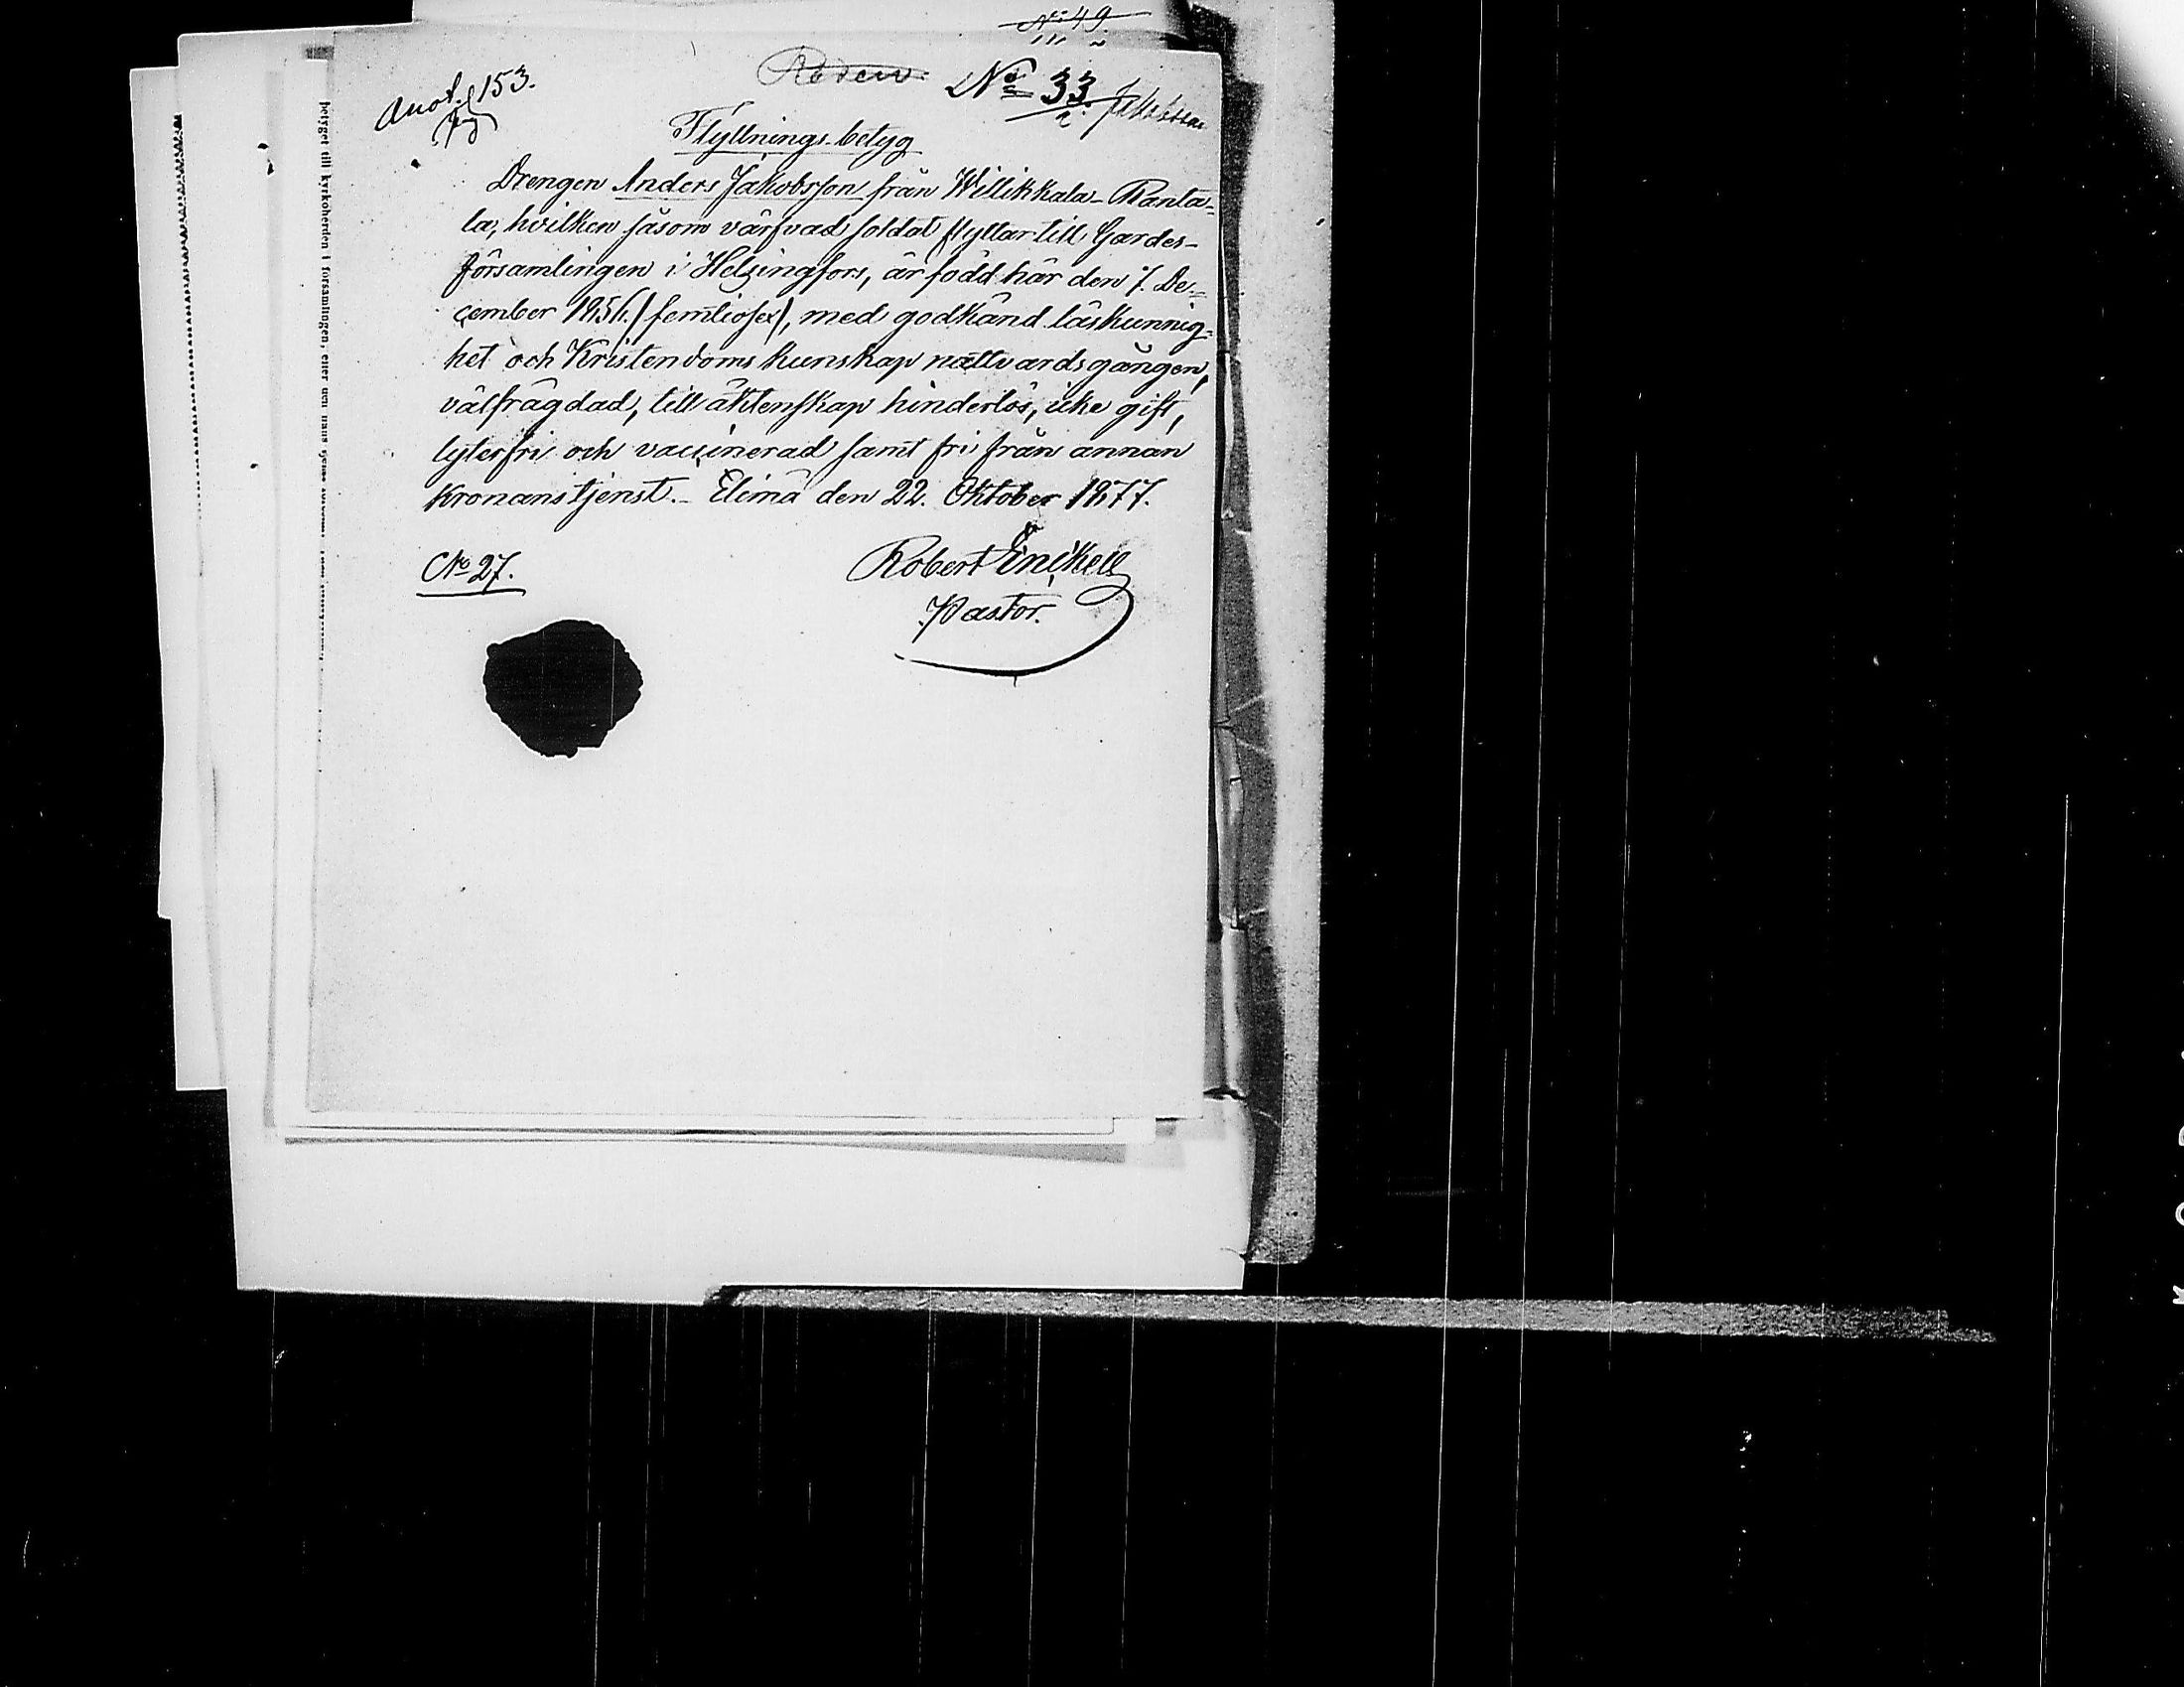 No 49.
Roden
No 33. Jakobsson
Anot. 153.
Flyttnings-betyg
Drengen Anders Jakobsson från Willikkala-Ranta-
la, hvilken såsom värfvad soldat flyttar till Gardes-
församlingen i Helsingfors, är född här den 7. De-
cember 1856. (femtiosex), med godkänd läskunnig-
het och Kristendoms kunskap nattvardsgången,
välfrägdad, till äktenskap hinderlös, icke gift,
lyterfri och vaccinerad samt fri från annan
kronans tjenst. - Elimä den 22. Oktober 1877.
No 27.
Robert Enckell
Pastor.
betyget till kyrkoherden i församlingen, eller den